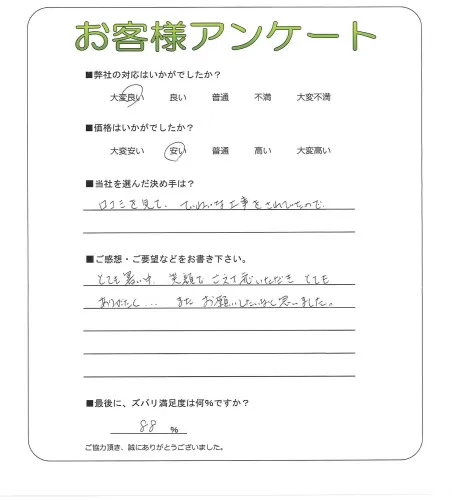 お客様アンケート
■弊社の対応はいかがでしたか？
大変良い 良い 普通 不満 大変不満
■価格はいかがでしたか？
大変安い 安い 普通 高い 大変高い
■当社を選んだ決め手は？
口コミを見て、ていねいな工事をされてたので
■ご感想・ご要望などをお書き下さい。
とても暑い中、笑顔で 応いただき とても
ありがたく... また お願いしたいなと思いました。
■最後に、ズバリ満足度は何%ですか？
88 %
ご協力頂き、誠にありがとうございました。